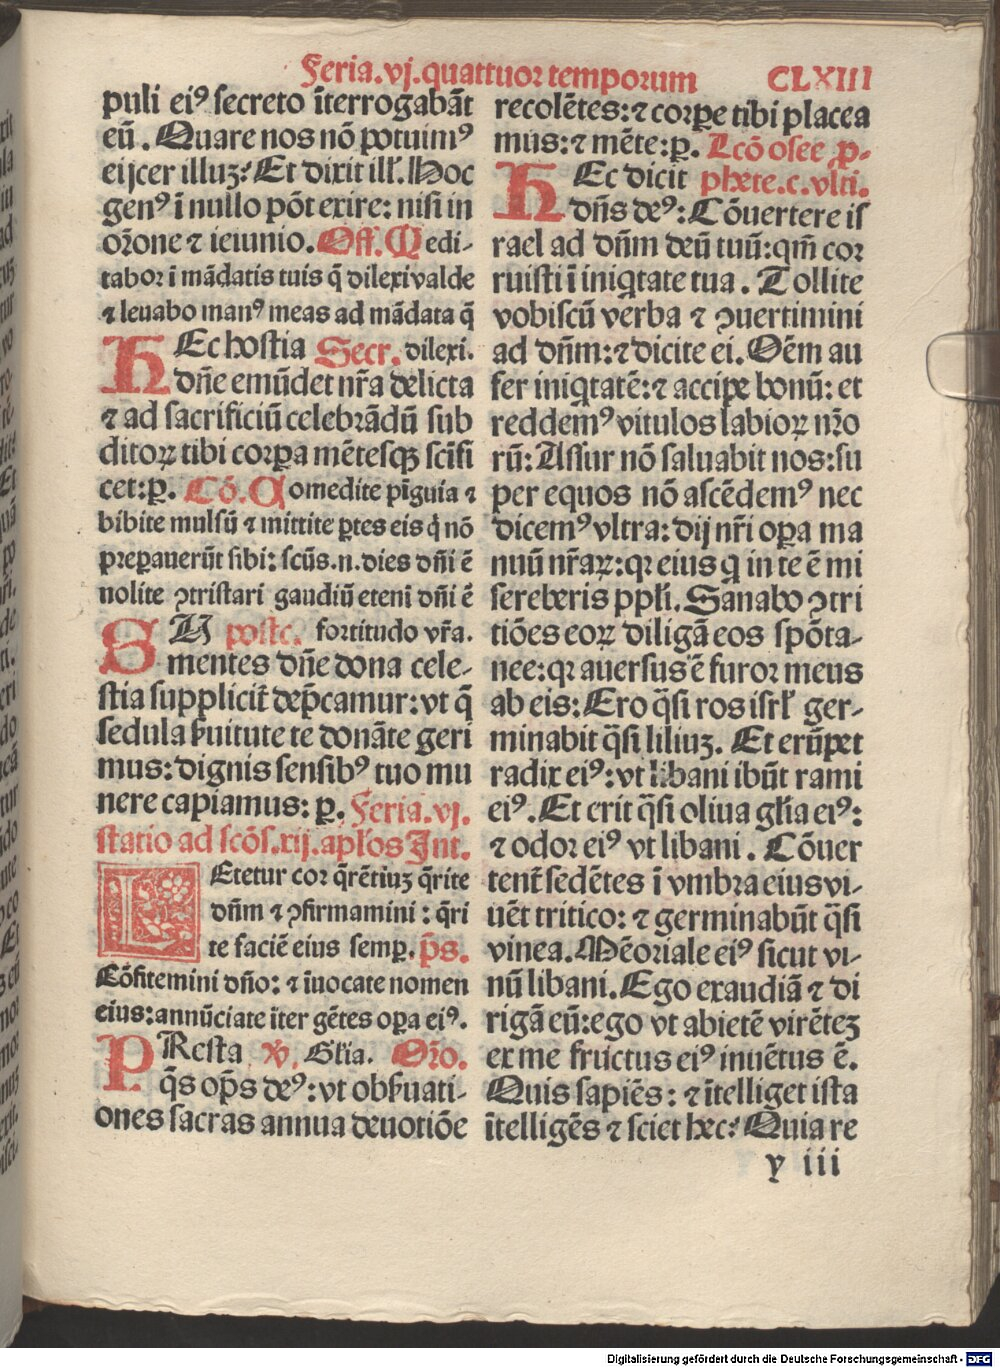 Feria.vj.quattuor temporum CLXIII
puli eiꝰ secreto ĩterrogabãt
eũ. Quare nos nõ potuimꝰ
eijcer illuꝫ? Et dixit ill'. Hoc
genꝰ ĩ nullo põt exire: nisi in
or̃one ⁊ ieiunio. Off. Medi-
tabor ĩ mãdatis tuis q̃ dilexi valde
⁊ leuabo manꝰ meas ad mãdata q̃
HEc hostia Secr. dilexi.
dñe emũdet nr̃a delicta
⁊ ad sacrificiũ celebrãdũ sub
ditoꝝ tibi corꝑa mẽtesqꝫ scĩfi
cet: ꝑ. Cõ. Comedite pĩguia ⁊
bibite mulsũ ⁊ mittite ꝑtes eis q̇ nõ
preꝑauerũt sibi: scũs.n.dies dñi ẽ
nolite ꝯtristari gaudiũ eteni dñi ẽ
SU postc. fortitudo vr̃a.
mentes dñe dona cele-
stia supplicit̃ dep̃camur: vt q̃
sedula ẜuitute te donãte geri
mus: dignis sensibꝰ tuo mu
nere capiamus: ꝑ. Feria.vj.
statio ad scõs.xij.apl'os Int.
LEtetur cor q̃rẽtiuꝫ q̃rite
dñm ⁊ ꝯfirmamini: q̃ri
te faciẽ eius semꝑ. p̃s.
Cõfitemini dño: ⁊ ĩuocate nomen
eius: annũciate ĩter gẽtes oꝑa eiꝰ.
PResta ℣. Gl'ia. Or̃o.
q̃s op̃s deꝰ: vt obẜuati-
ones sacras annua deuotiõe
recolẽtes: ⁊ corꝑe tibi placea
mus: ⁊ mẽte: ꝑ. Lcõ osee ꝓ-
HEc dicit phete.c.vlti.
dñs deꝰ: Cõuertere is
rael ad dñm deũ tuũ: qm̃ cor
ruisti ĩ iniq̇tate tua. Tollite
vobiscũ verba ⁊ ꝯuertimini
ad dñm: ⁊ dicite ei. Om̃em au
fer iniq̇tatẽ: ⁊ accipe bonũ: et
reddemꝰ vitulos labioꝝ nr̃o
rũ: Assur nõ saluabit nos: su
per equos nõ ascẽdemꝰ nec
dicemꝰ vltra: dij nr̃i oꝑa ma
nuũ nr̃aꝝ: qꝛ eius q̇ in te ẽ mi
sereberis ppl'i. Sanabo ꝯtri
tiões eoꝝ diligã eos spõta-
nee: qꝛ auersus ẽ furor meus
ab eis: Ero q̃si ros isrl' ger-
minabit q̃si liliuꝫ. Et erũpet
radix eiꝰ: vt libani ibũt rami
eiꝰ. Et erit q̃si oliua gl'ia eiꝰ:
⁊ odor eiꝰ vt libani. Cõuer
tent̃ sedẽtes ĩ vmbra eius vi-
uẽt tritico: ⁊ germinabũt q̃si
vinea. Mẽoriale eiꝰ sicut vi-
nũ libani. Ego exaudiã ⁊ di
rigã eũ: ego vt abietẽ virẽteꝫ
ex me fructus eiꝰ inuẽtus ẽ.
Quis sapiẽs: ⁊ ĩtelliget ista
ĩtelligẽs ⁊ sciet hec? Quia re
y iii
Digitalisierung gefördert durch die Deutsche Forschungsgemeinschaft - DFG